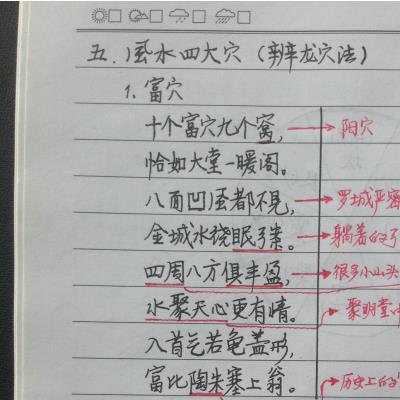 五.风水四大穴(辨龙穴法)
1.富穴
十个富穴九个窝, → 阳穴
恰如大堂一暖阁。
八面凹风都不见, → 罗城严密
金城水绕眠弓案。 → 躺着的弓
四周八方俱丰盈, → 很多小山头
水聚天心更有情。 → 聚明堂
入首气若龟盖形,
富比陶朱塞上翁。 → 历史上的